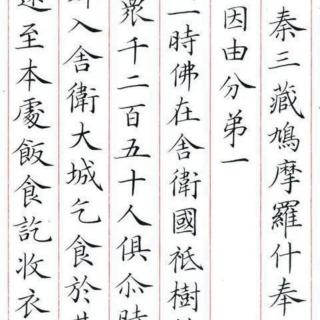 秦三藏鳩摩羅什奉
因由分第一
一時佛在舍衛國祗樹
眾千二百五十人俱尒時
入舍衛大城乞食於其
還至本處飯食訖收衣